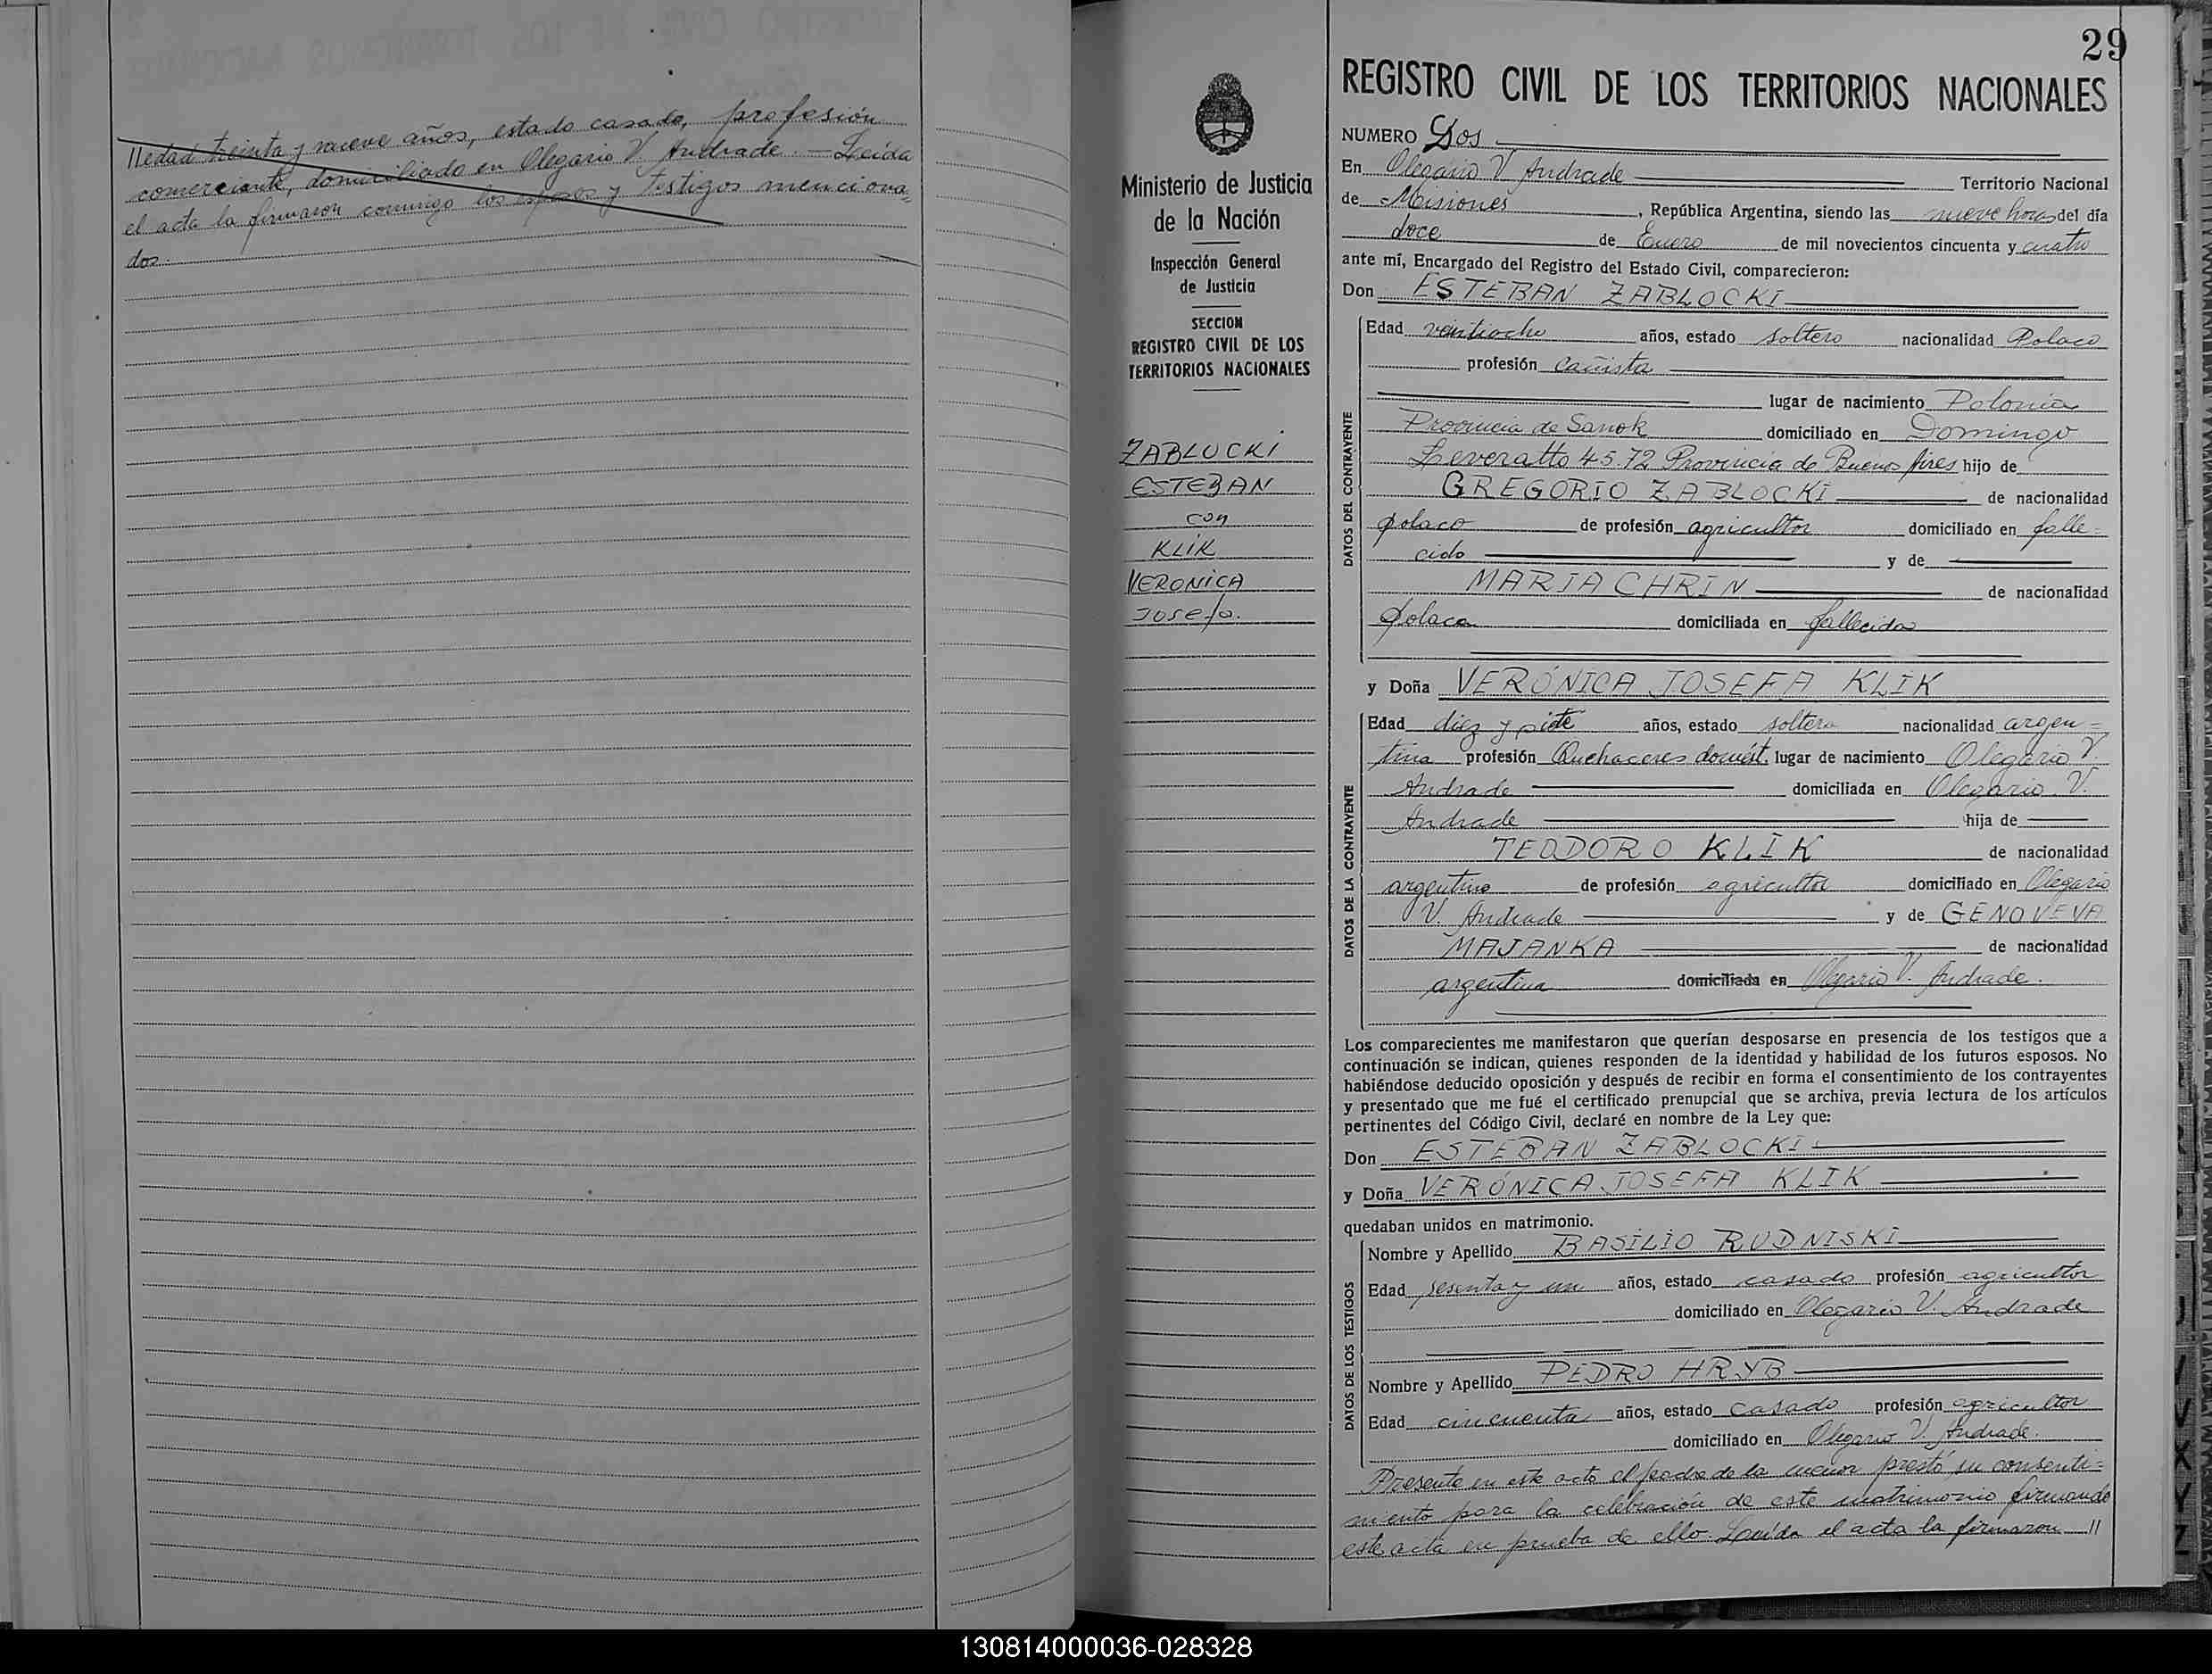 //edad treinta y nueve años, estado casado, profesión
comerciante, domiciliado en Olegario V. Andrade. — Leída
el acta la firmaron conmigo los esposos y testigos menciona=
dos.
29
REGISTRO CIVIL DE LOS TERRITORIOS NACIONALES
Ministerio de Justicia
de la Nación
Inspección General
de Justicia
SECCION
REGISTRO CIVIL DE LOS
TERRITORIOS NACIONALES
ZABLOCKI
ESTEBAN
con
KLIK
VERONICA
Josefa.
NUMERO Dos
En Olegario V Andrade Territorio Nacional
de Misiones, República Argentina, siendo las nueve horas del día
doce de Enero de mil novecientos cincuenta y cuatro
ante mí, Encargado del Registro del Estado Civil, comparecieron:
Don ESTEBAN ZABLOCKI
DATOS DEL CONTRAYENTE
Edad veintiocho años, estado soltero nacionalidad Polaco
profesión cañista
lugar de nacimiento Polonia
Provincia de Sanok domiciliado en Domingo
Leveratto 4572 Provincia de Buenos Aires hijo de
GREGORIO ZABLOCKI de nacionalidad
polaco de profesión agricultor domiciliado en falle=
cido y de
MARIA CHRIN de nacionalidad
polaca domiciliada en fallecida
y Doña VERÓNICA JOSEFA KLIK
DATOS DE LA CONTRAYENTE
Edad diez y siete años, estado soltera nacionalidad argen=
tina profesión Quehaceres domést. lugar de nacimiento Olegario V.
Andrade domiciliada en Olegario V.
Andrade hija de
TEODORO KLIK de nacionalidad
argentino de profesión agricultor domiciliado en Olegario
V. Andrade y de GENOVEVA
MAJANKA de nacionalidad
argentina domiciliada en Olegario V. Andrade.
Los comparecientes me manifestaron que querían desposarse en presencia de los testigos que a
continuación se indican, quienes responden de la identidad y habilidad de los futuros esposos. No
habiéndose deducido oposición y después de recibir en forma el consentimiento de los contrayentes
y presentado que me fué el certificado prenupcial que se archiva, previa lectura de los artículos
pertinentes del Código Civil, declaré en nombre de la Ley que:
Don ESTEBAN ZABLOCKI
y Doña VERÓNICA JOSEFA KLIK
quedaban unidos en matrimonio.
DATOS DE LOS TESTIGOS
Nombre y Apellido BASILIO RUDNISKI
Edad sesenta y un años, estado casado profesión agricultor
domiciliado en Olegario V. Andrade
Nombre y Apellido PEDRO HRYB
Edad cincuenta años, estado casado profesión agricultor
domiciliado en Olegario V. Andrade.
Presente en este acto el padre de la menor prestó su consenti=
miento para la celebración de este matrimonio firmando
este acta en prueba de ello. Leída el acta la firmaron //
130814000036-028328